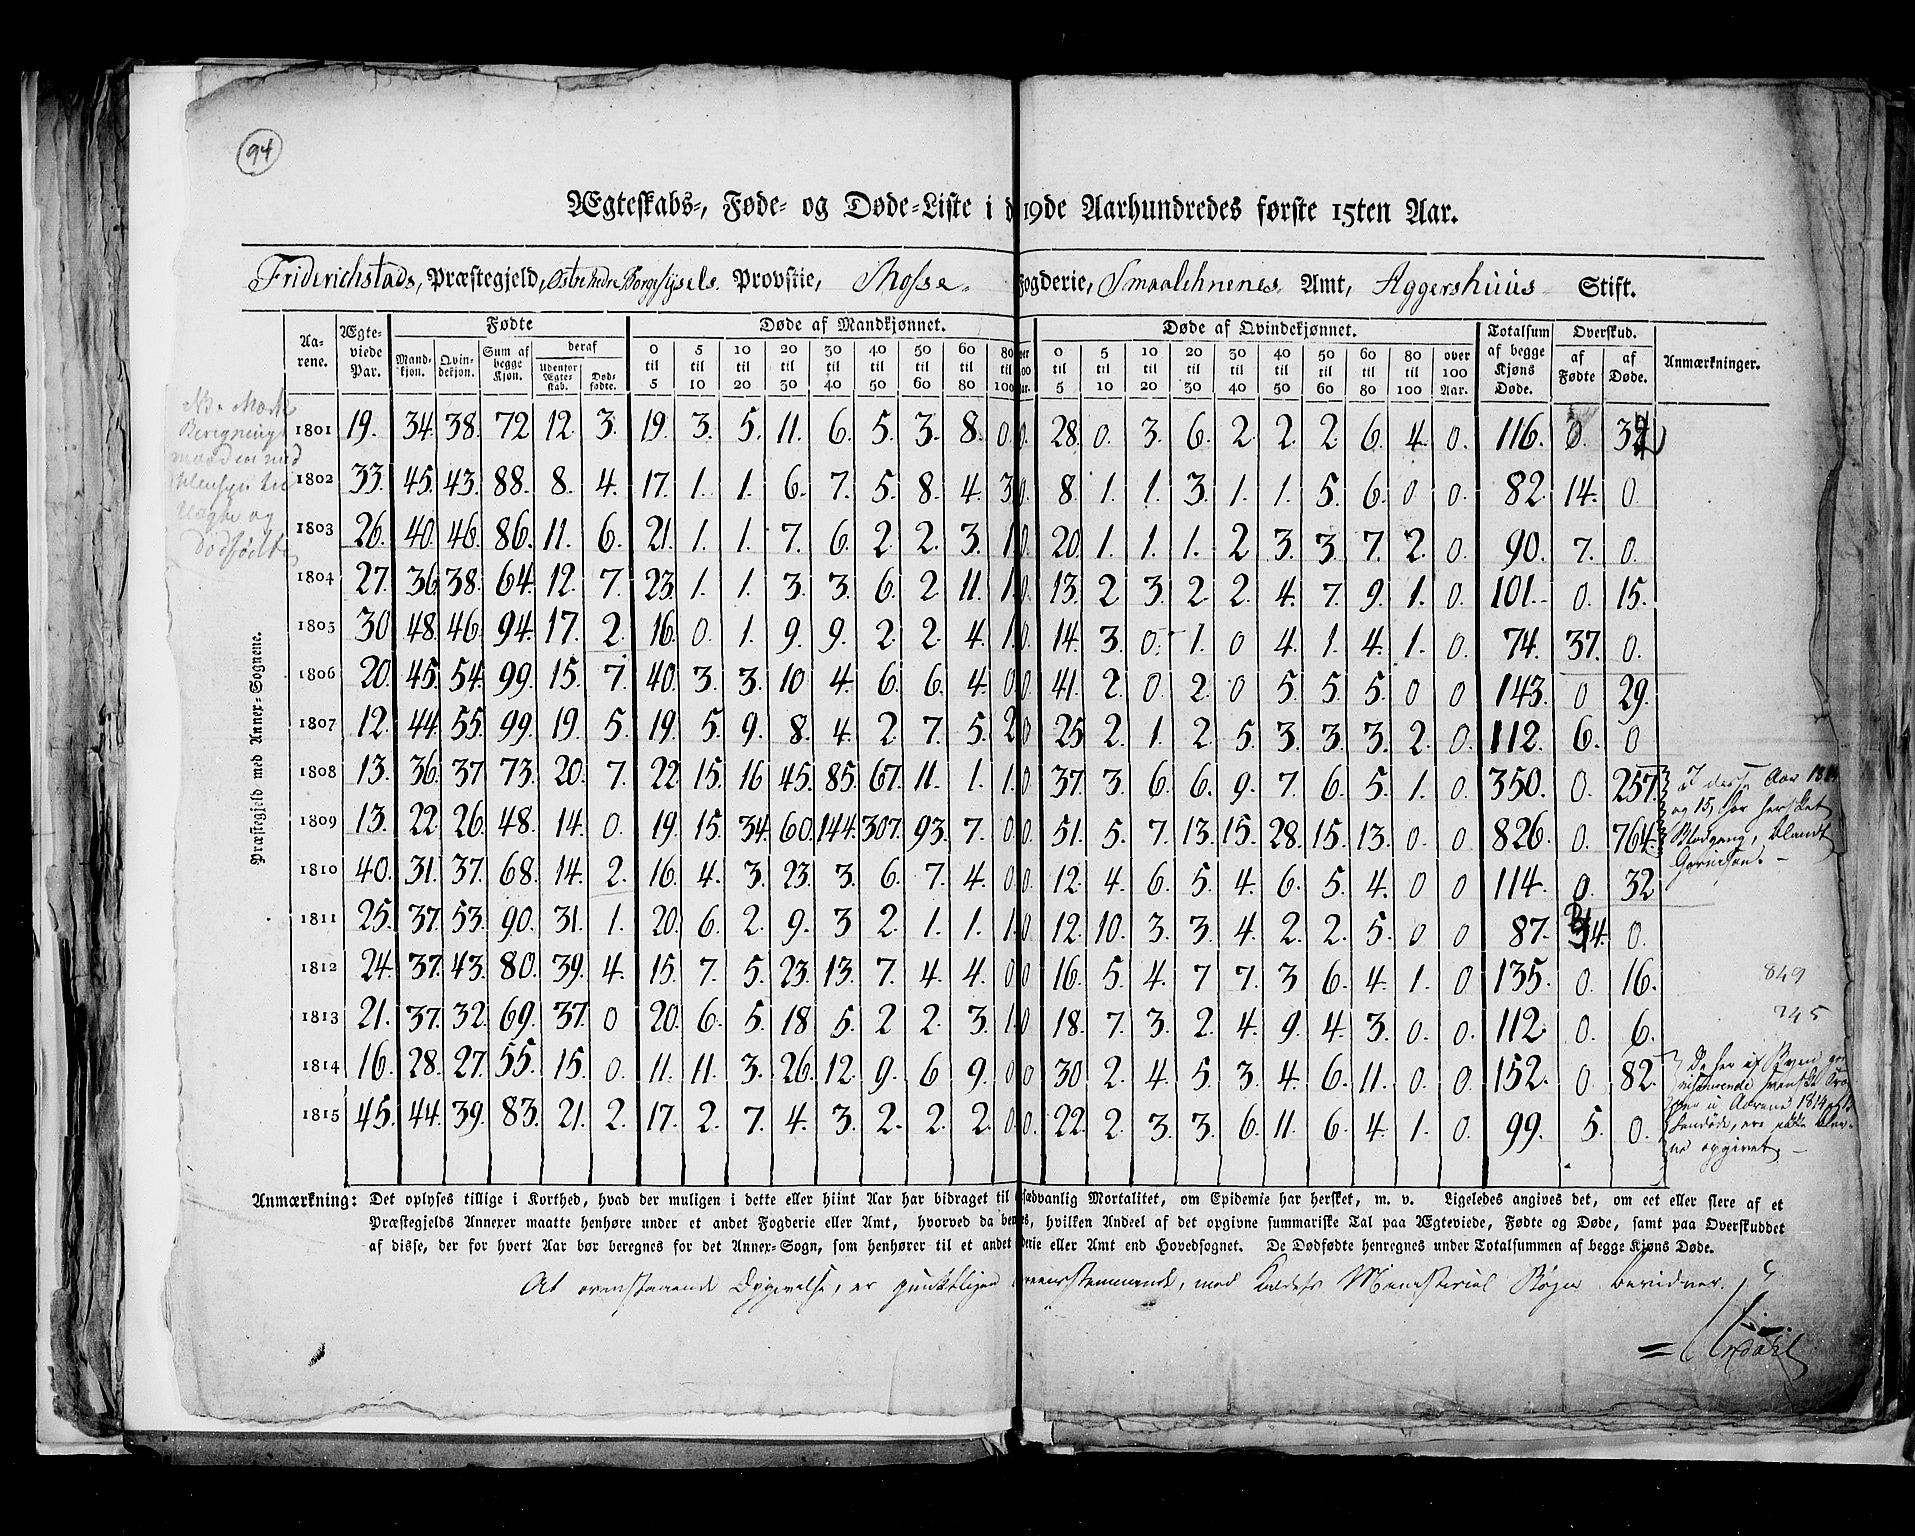 94
Ægteskabs-, Føde- og Døde-Liste i d 19de Aarhundredes første 15ten Aar.
Friderichstads, Præstegjeld, Østre Nedre Borgesyssels Provstie, Mosse Fogderie, Smaalehnenes Amt, Aggershuus Stift.
Præstegjeld med Annex-Sognene.
Aarene. Ægteviede Par. Fødte Døde af Mandkjønnet. Døde af Qvindekjønnet. Totalsum af begge Kjøns Døde. Overskud. Anmærkninger.
Mandkjøn. Qvindekjøn. Sum af begge Kjøn. deraf Udenfor Ægteskab. Dødfødte. 0 til 5 5 til 10 10 til 20 20 til 30 30 til 40 40 til 50 50 til 60 60 til 80 80 til 100 0 til 5 5 til 10 10 til 20 20 til 30 30 til 40 40 til 50 50 til 60 60 til 80 80 til 100 over 100 Aar. af Fødte af Døde.
1801 19. 34. 38. 72 12. 3. 19. 3. 5. 11. 6. 5. 3. 8. 0. 0. 28. 0. 3. 6. 2 2. 2 6. 4 0. 116. 0. 34
1802 33. 45. 43. 88. 8. 4. 17. 1. 1. 6. 7. 5. 8. 4. 3 0. 8. 1. 1. 3. 1. 1. 5. 6. 0 0. 82 14. 0.
1803 26. 40. 46. 86. 11. 6. 21. 1. 1. 7. 6. 2 2. 3. 1. 0. 20. 1. 1. 1. 2 3. 3. 7. 2. 0. 90. 7. 0.
1804 27. 36. 38. 64. 12. 7. 23. 1. 1. 3. 3. 6. 2 11. 1. 0. 13. 2 3. 2 2. 4. 7. 9. 1. 0. 101. 0. 15.
1805 30 48. 46. 94. 17. 2. 16. 0. 1. 9. 9. 2 2. 4. 1. 0. 14. 3. 0. 1. 0 4. 1. 4. 1. 0. 74. 37. 0.
1806 20. 45. 54. 99. 15. 7. 40. 3. 3. 10 4. 6. 6. 4. 0 0 41. 2. 0 2. 0 5. 5. 5. 0 0 143. 0 29.
1807 12. 44. 55. 99. 19. 5. 19. 5. 9. 8. 4. 2 7. 5. 2 0 25 2. 1. 2 5. 3. 3. 3. 2 0. 112. 6. 0
1808 13. 36. 37 73. 20. 7. 22 15. 16 45. 85. 67. 11. 1. 1. 0 37. 3. 6. 6. 9. 7. 6. 5. 1. 0 350. 0. 257.
1809 13. 22. 26. 48. 14. 0. 19. 15. 34. 60. 144. 307. 93. 7. 0. 0 51. 5. 7. 13. 15. 28. 15. 13. 0. 0 826. 0. 764.
1810 40. 31. 37. 68. 14. 2. 16. 4. 3. 23. 3. 6. 7. 4. 0 0. 12. 4. 6. 5. 4. 6. 5. 4. 0 0 114. 0. 32
1811 25. 37. 53. 90. 31. 1. 20. 6. 2 9. 3 2. 1. 1. 1. 0 12. 10. 3. 3. 4. 2. 2. 5. 0 0 87. 4. 0.
1812 24. 37. 43. 80. 39. 4. 15. 7. 5. 23. 13. 7. 4. 4. 0 0 16. 5. 4. 7 7. 3 6. 4. 1. 0 135. 0. 16.
1813 21. 37. 32. 69. 37. 0 20. 6. 5. 18 5. 2 2. 3. 1. 0 18. 7. 3. 2. 4. 9. 4. 3. 0. 0. 112. 0. 6.
1814 16. 28. 27. 55. 15. 0. 11. 11. 3. 26. 12. 9. 6 9. 0 0 30 2. 4. 5. 3. 4. 6. 11. 0. 0. 152. 0. 82.
1815 45. 44. 39. 83. 21. 2. 17. 2. 7. 4. 3. 2. 2. 2. 0 0. 22. 2. 3. 3. 6. 11. 6. 4. 1. 0. 99. 5. 0.
I disse Aar
og 15, har hersket
Blodgang, blandt
Garnison.
849
745
De her af Byen
svenske
i Aarene 1814
ere ikke
opgivet
Anmærkning: Det oplyses tillige i Korthed, hvad der muligen i dette eller hiint Aar har bidraget til sædvanlig Mortalitet, om Epidemie har hersket, m. v. Ligeledes angives det, om eet eller flere af et
Præstegjelds Annexer maatte henhøre under et andet Fogderie eller Amt, hvorved da be s, hvilken Andeel af det opgivne summariske Tal paa Ægteviede, Fødte og Døde, samt paa Overskuddet
af disse, der for hvert Aar bør beregnes for det Annex-Sogn, som henhører til et andet derie eller Amt end Hovedsognet. De Dødfødte henregnes under Totalsummen af begge Kjøns Døde.
At ovenstaaende Opgivelse, er punktligen overensstemmende, med Kaldets Ministerial Bøger bevidner.